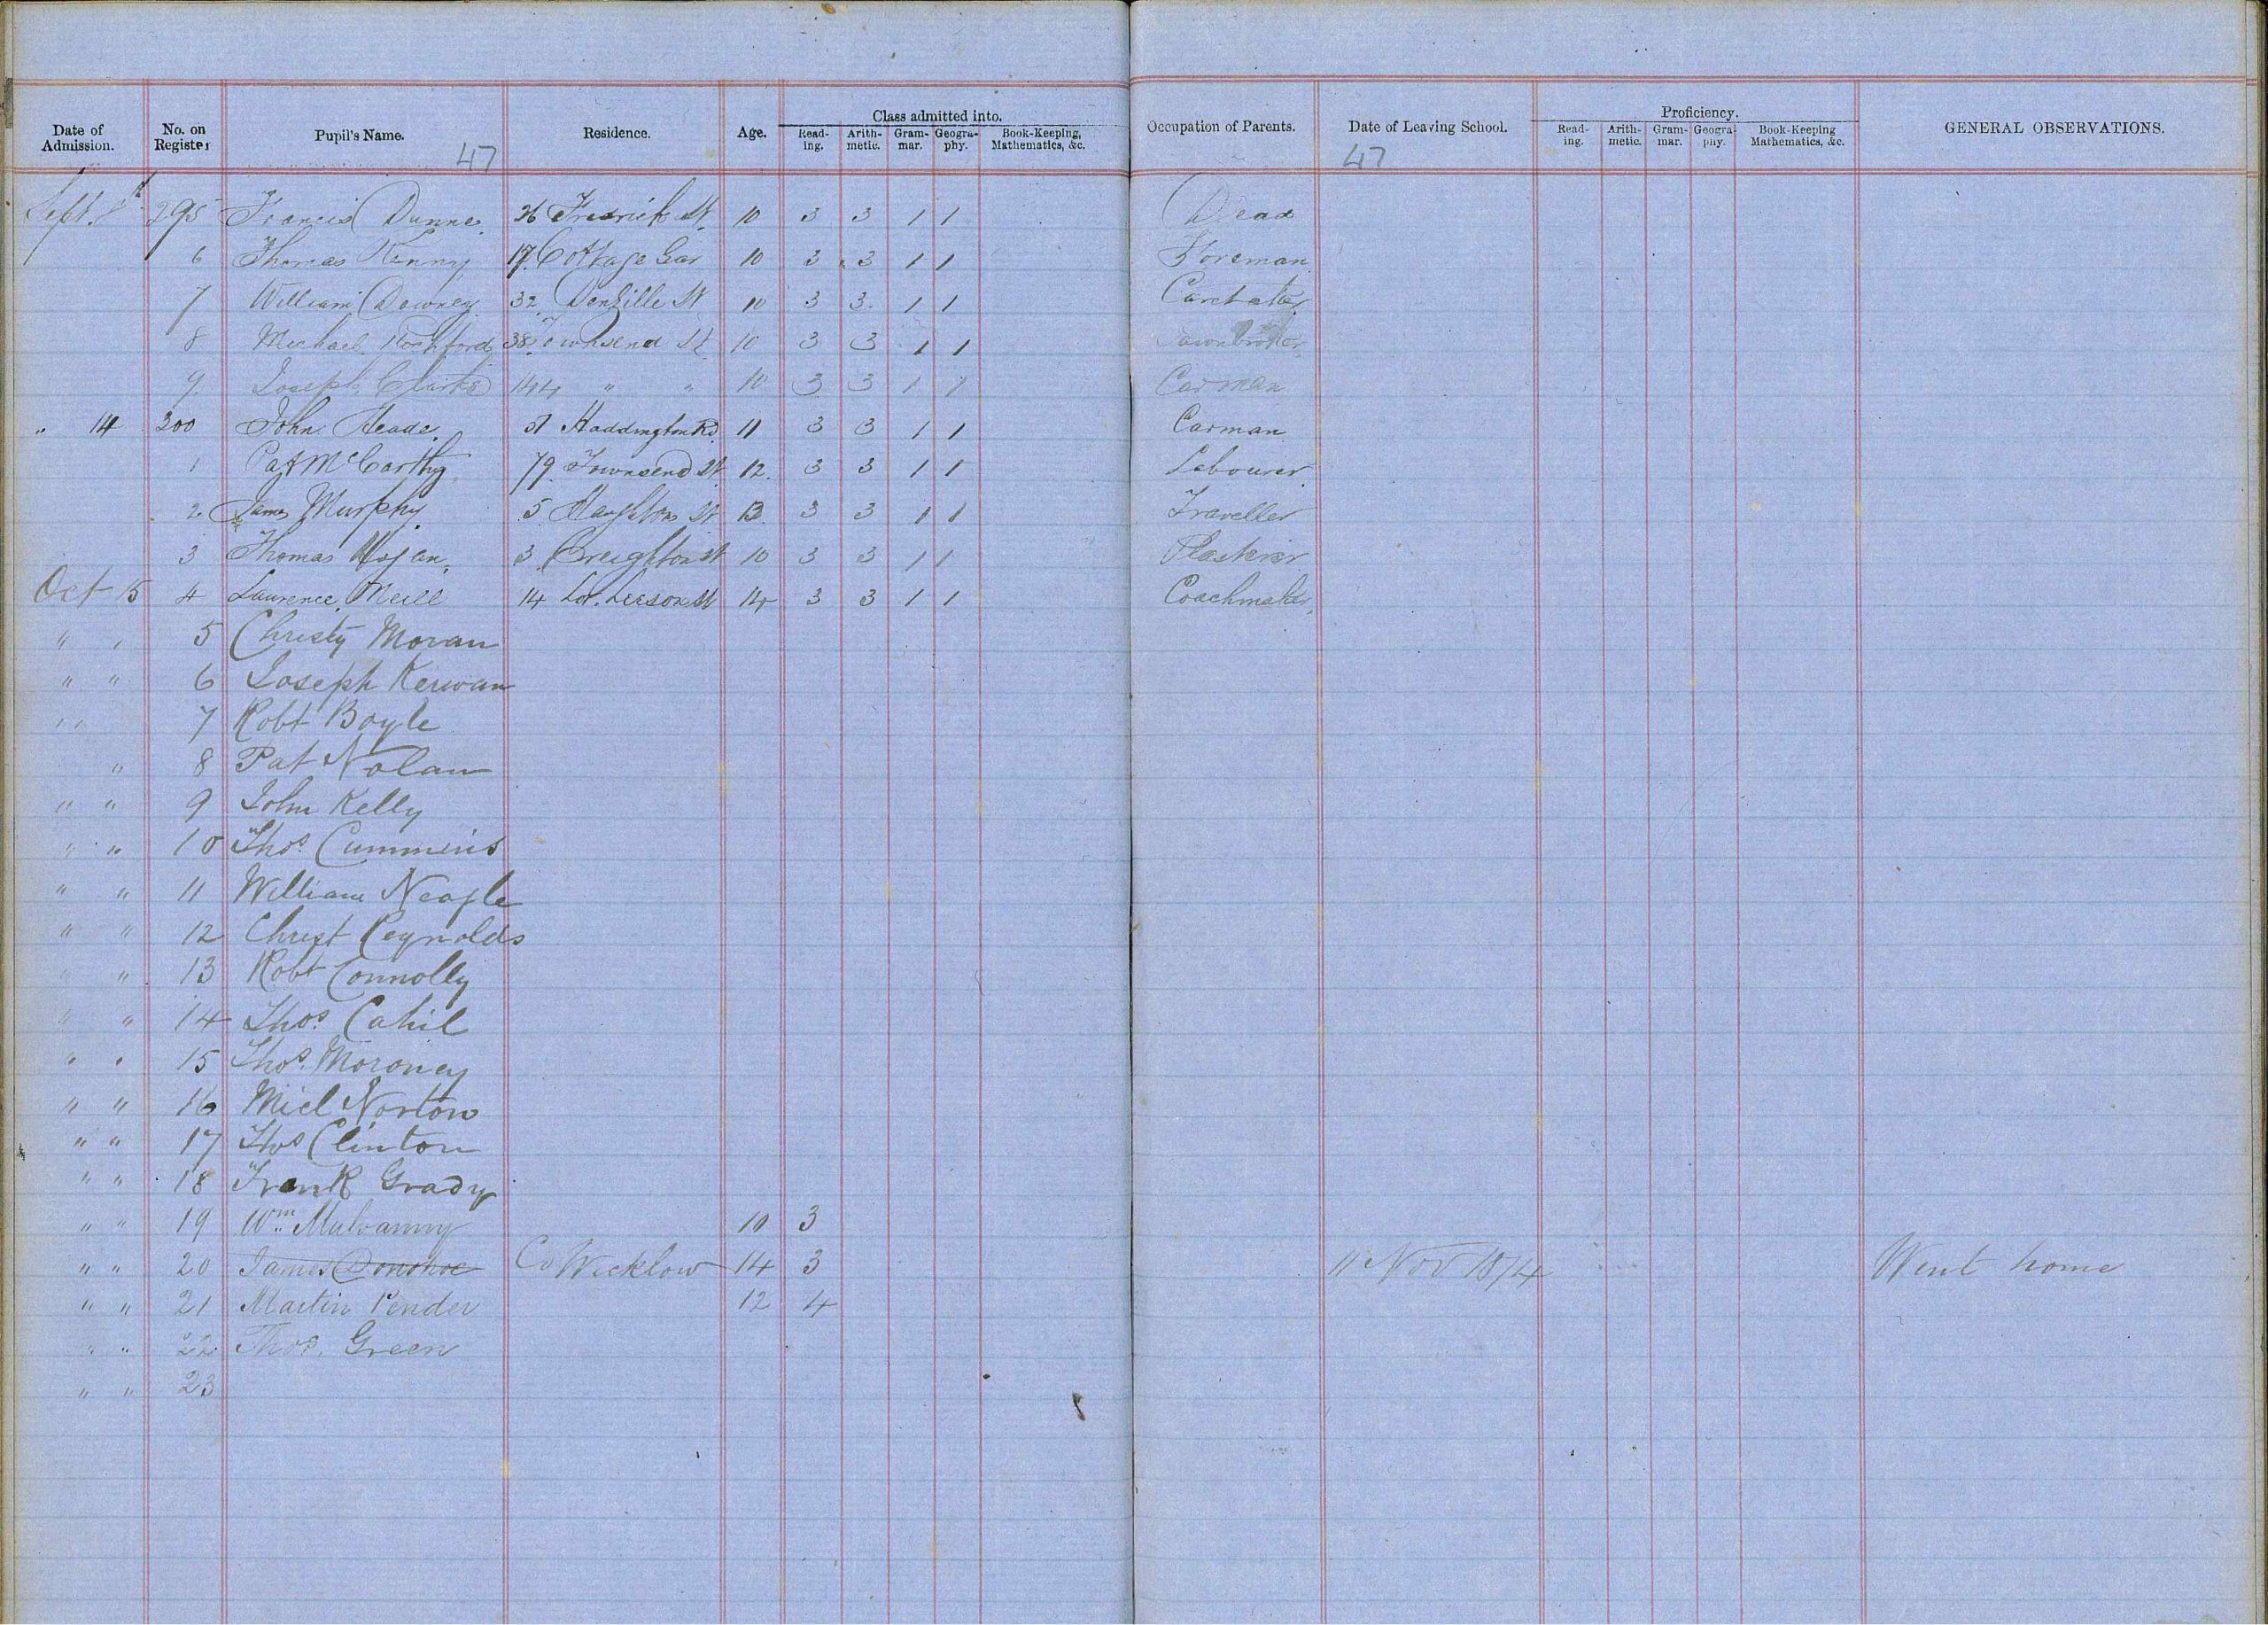 Date of Admission. No. on Register Pupil's Name. Residence. Age. Class admitted into. Read-ing. Arith-metic. Gram-mar. Geogra-phy. Book-Keeping, Mathematics, &c. Occupation of Parents. Date of Leaving School. Proficiency. Read-ing. Arith-metic. Gram-mar. Geogra-phy. Book-Keeping Mathematics, &c. GENERAL OBSERVATIONS.
47 47
Sept. 295 Francis Dunne. 26 Fredrick St. 10 3 3 1 1 Dead
6 Thomas Kenny 17 Cottage Gar 10 3 3 1 1 Foreman
7 William Downey 32 Denzille St 10 3 3. 1 1
8 Michael Rochford 38 Townsend St. 10 3 3 1 1 Pawnbroker
9. Joseph Clarke 144 " " 10 3 3 1 1 Carman
" 14 200 John Heade. Haddington Rd. 11 3 3 1 1 Carman
1 Pat McCarthy 79. Townsend St 12. 3 3 1 1 Labourer.
2 James Murphy. 5 St 13. 3 3 1 1 Traveller
3 Thomas Hogan. 3. Creighton St 10 3 3 1 1 Plasterer
Oct 15 4 Laurence Neill 14 Lr. Leeson St 14 3 3 1 1 Coachmaker
" " 5 Christy Moran
" " 6 Joseph Kerwan
" " 7 Robt Boyle
" 8 Pat Nolan
" " 9 John Kelly
" " 10 Thos. Cummins
" " 11 William Neagle
" " 12 Christ Reynolds
" " 13 Robt Connolly
" " 14 Thos. Cahil
" " 15 Thos. Moroney
" " 16 Micl Norton
" " 17 Thos Clinton
" " 18 Frank Grady
" " 19 Wm. Mulvanny 10 3
" " 20 James Donohoe Co Wicklow 14 3 11 Nov 1874 Went home
" " 21 Martin Pender 12 4
" " 22 Thos. Green
" " 23